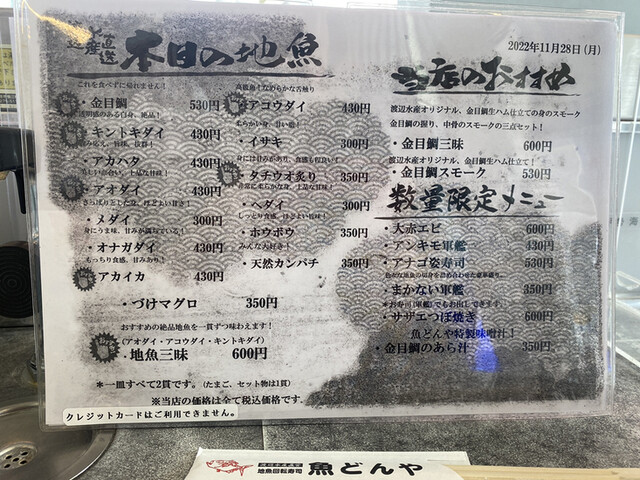 産直
本日の地魚
これを食べずに帰れません!
・金目鯛 530円
・キントキダイ 430円
・アカハタ 430円
・アオダイ 430円
・メダイ 300円
身にうま味、甘みが満ちている!
・オナガダイ 430円
もっちり食感、甘みあり!
アカイカ 430円
・づけマグロ 350円
おすすめの絶品地魚を一貫ずつ味わえます!
(アオダイ・アコウダイ・キントキダイ)
・地魚三昧 600円
*一皿すべて2貫です。(たまご、セット物は1貫)
※当店の価格は全て税込価格です.
クレジットカードはご利用できません。
アコウダイ 430円
・イサキ 300円
・タチウオ炙り 350円
・ヘダイ 300円
しっとり食感、ほどよい旨味!
・ホウボウ 350円
みんな大好き!
・天然カンパチ 350円
2022年11月28日(月)
当店のおすすめ
渡辺水産オリジナル、金目鯛生ハム仕立ての身のスモーク
金目鯛の握り、中骨のスモークの三点セット!
・金目鯛三昧 600円
渡辺水産オリジナル、金目鯛生ハム仕立て!
・金目鯛スモーク 530円
数量限定メニュー
・大赤エビ 600円
・アンキモ軍艦 430円
・アナゴ姿寿司 530円
・まかない軍艦 350円
*お寿司(軍艦)でもお出しできます。
・サザエつぼ焼き 600円
魚どんや特製味噌汁!
・金目鯛のあら汁 350円
地魚回転寿司 魚どんや